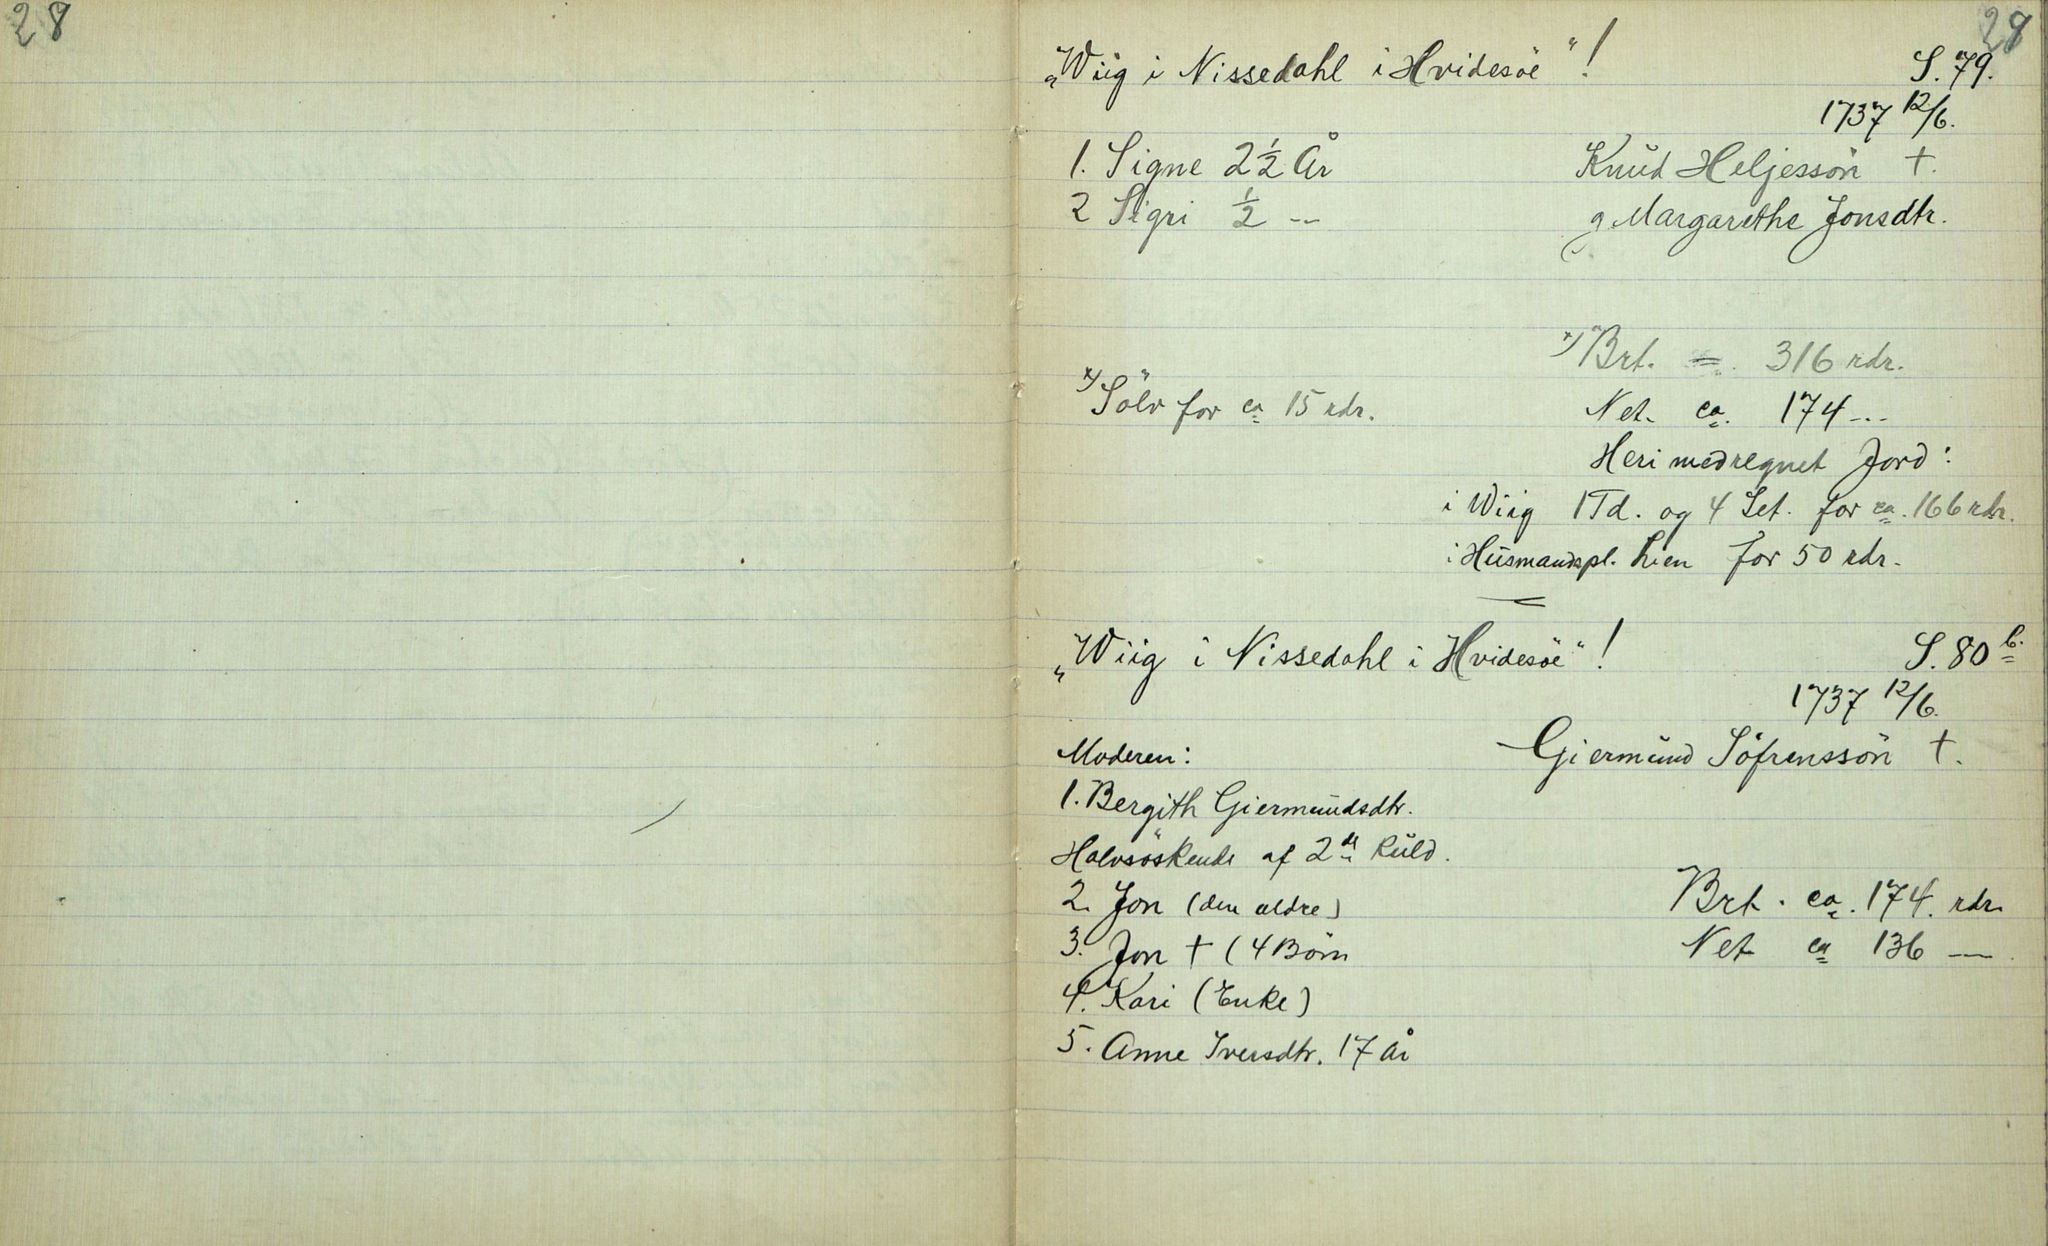 28
28
„Wiig i Nissedahl i Hvidesöe"! S. 79.
1737 12/6.
1. Signe 2 1/2 År Knud Heljessön †.
2 Sigri 1/2 -- g Margarethe Jonsdtr.
x) Brt. = 316 rdr.
x) Sölv for ca 15 rdr. Net. ca. 174 --
Heri medregnet Jord:
i Wiig 1 Td. og 4 Set. for ca. 166 rdr.
i Husmandspl. Lien for 50 rdr.
„Wiig i Nissedahl i Hvidesöe"! S. 80 b.
1737 12/6.
Moderen: Giermund Söfrenssön †.
1. Bergith Giermundsdtr.
Halvsöskende af 2de Kuld.
2. Jon (den ældre) Brt. ca. 174. rdr.
3. Jon † (4 Börn Net ca 136 --
4. Kari (Enke)
5. Anne Iversdtr. 17 År